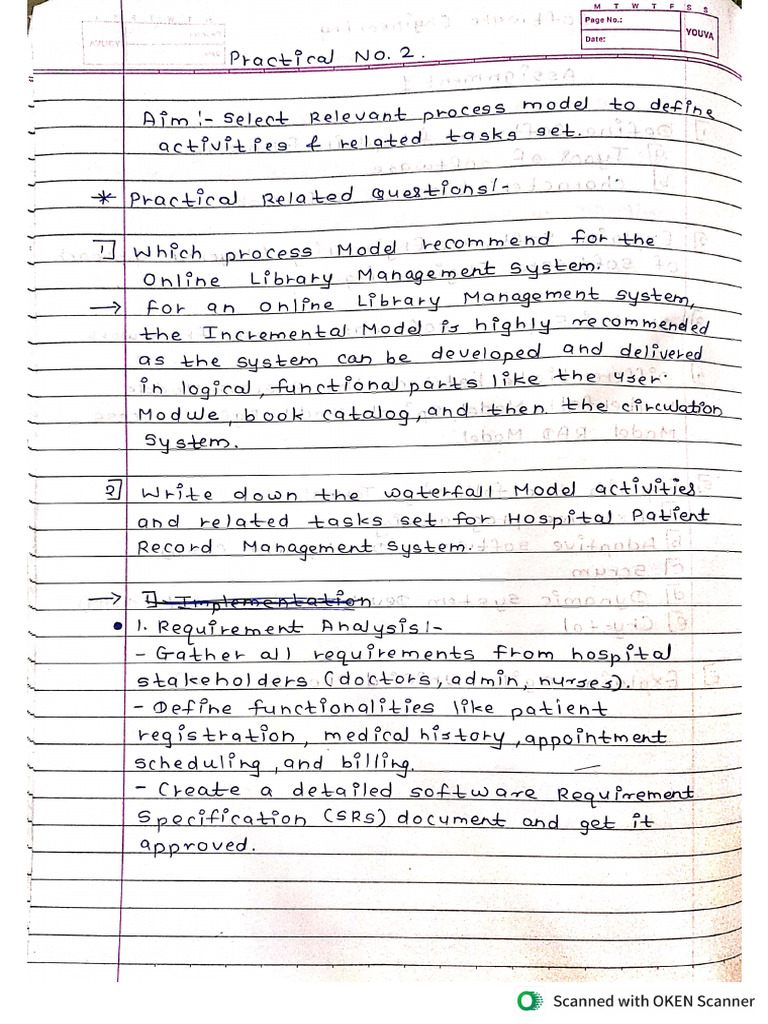 M T W T F S S
Page No.:
Date:
YOUVA
Practical No. 2.
Aim :- Select Relevant process model to define
activities & related tasks set.
* Practical Related Questions :-
1] Which process Model recommend for the
Online Library Management System.
→ for an online Library Management system,
the Incremental Model is highly recommended
as the system can be developed and delivered
in logical, functional parts like the user
Module, book catalog, and then the circulation
System.
2] Write down the waterfall Model activities
and related tasks set for Hospital Patient
Record Management System.
→ 1. Implementation
• 1. Requirement Analysis :-
- Gather all requirements from hospital
stakeholders (doctors, admin, nurses).
- Define functionalities like patient
registration, medical history, appointment
scheduling, and billing.
- Create a detailed software Requirement
Specification (SRS) document and get it
approved.
Scanned with OKEN Scanner